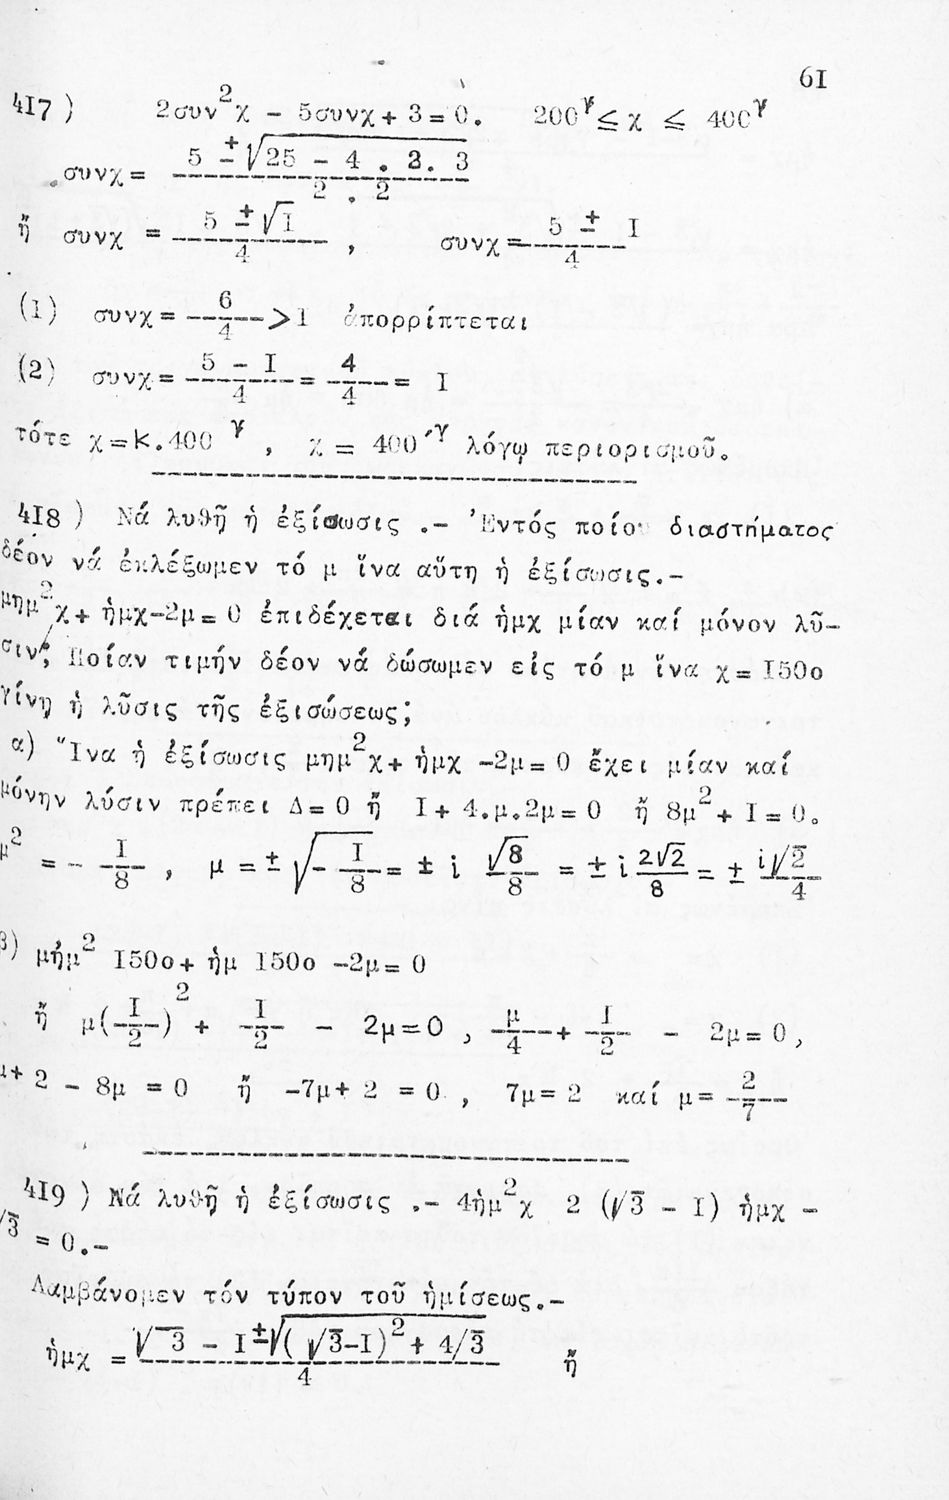 61
417) 2συν²χ – 5συνχ + 3 = 0. 200ᵞ ≤ χ ≤ 400ᵞ
συνχ = (5 ± √(25 – 4 . 2. 3)) / (2 . 2)
ἤ συνχ = (5 ± √1) / 4 , συνχ = (5 ± I) / 4
(1) συνχ = 6/4 >1 ἀπορρίπτεται
(2) συνχ = (5 – I)/4 = 4/4 = I
τότε χ = k.400ᵞ , χ = 400ᵞ λόγῳ περιορισμοῦ.
418) Νά λυθῇ ἡ ἐξίσωσις .– Ἐντός ποίου διαστήματος
δέον νά ἐκλέξωμεν τό μ ἵνα αὕτη ἡ ἐξίσωσις.–
μημ²χ + ἡμχ–2μ = 0 ἐπιδέχεται διά ἡμχ μίαν καί μόνον λῦ–
σιν; Ποίαν τιμήν δέον νά δώσωμεν εἰς τό μ ἵνα χ = I50ο
γίνῃ ἡ λῦσις τῆς ἐξισώσεως;
α) Ἵνα ἡ ἐξίσωσις μημ²χ + ἡμχ –2μ = 0 ἔχει μίαν καί
μόνην λύσιν πρέπει Δ = 0 ἤ I + 4.μ.2μ = 0 ἤ 8μ² + I = 0.
μ² = – I/8 , μ = ± √(– I/8) = ± i √8/8 = ± i 2√2/8 = ± i√2/4
β) μήμ² I50ο + ἡμ I50ο –2μ = 0
ἤ μ(I/2)² + I/2 – 2μ = 0 , μ/4 + I/2 – 2μ = 0,
μ + 2 – 8μ = 0 ἤ –7μ + 2 = 0 , 7μ = 2 καί μ = 2/7
419) Νά λυθῇ ἡ ἐξίσωσις .– 4ἡμ²χ 2 (√3 – I) ἡμχ –
√3 = 0.–
Λαμβάνομεν τόν τύπον τοῦ ἡμίσεως.–
ἡμχ = (√3 – I ± √((√3–I)² + 4√3)) / 4 ἤ